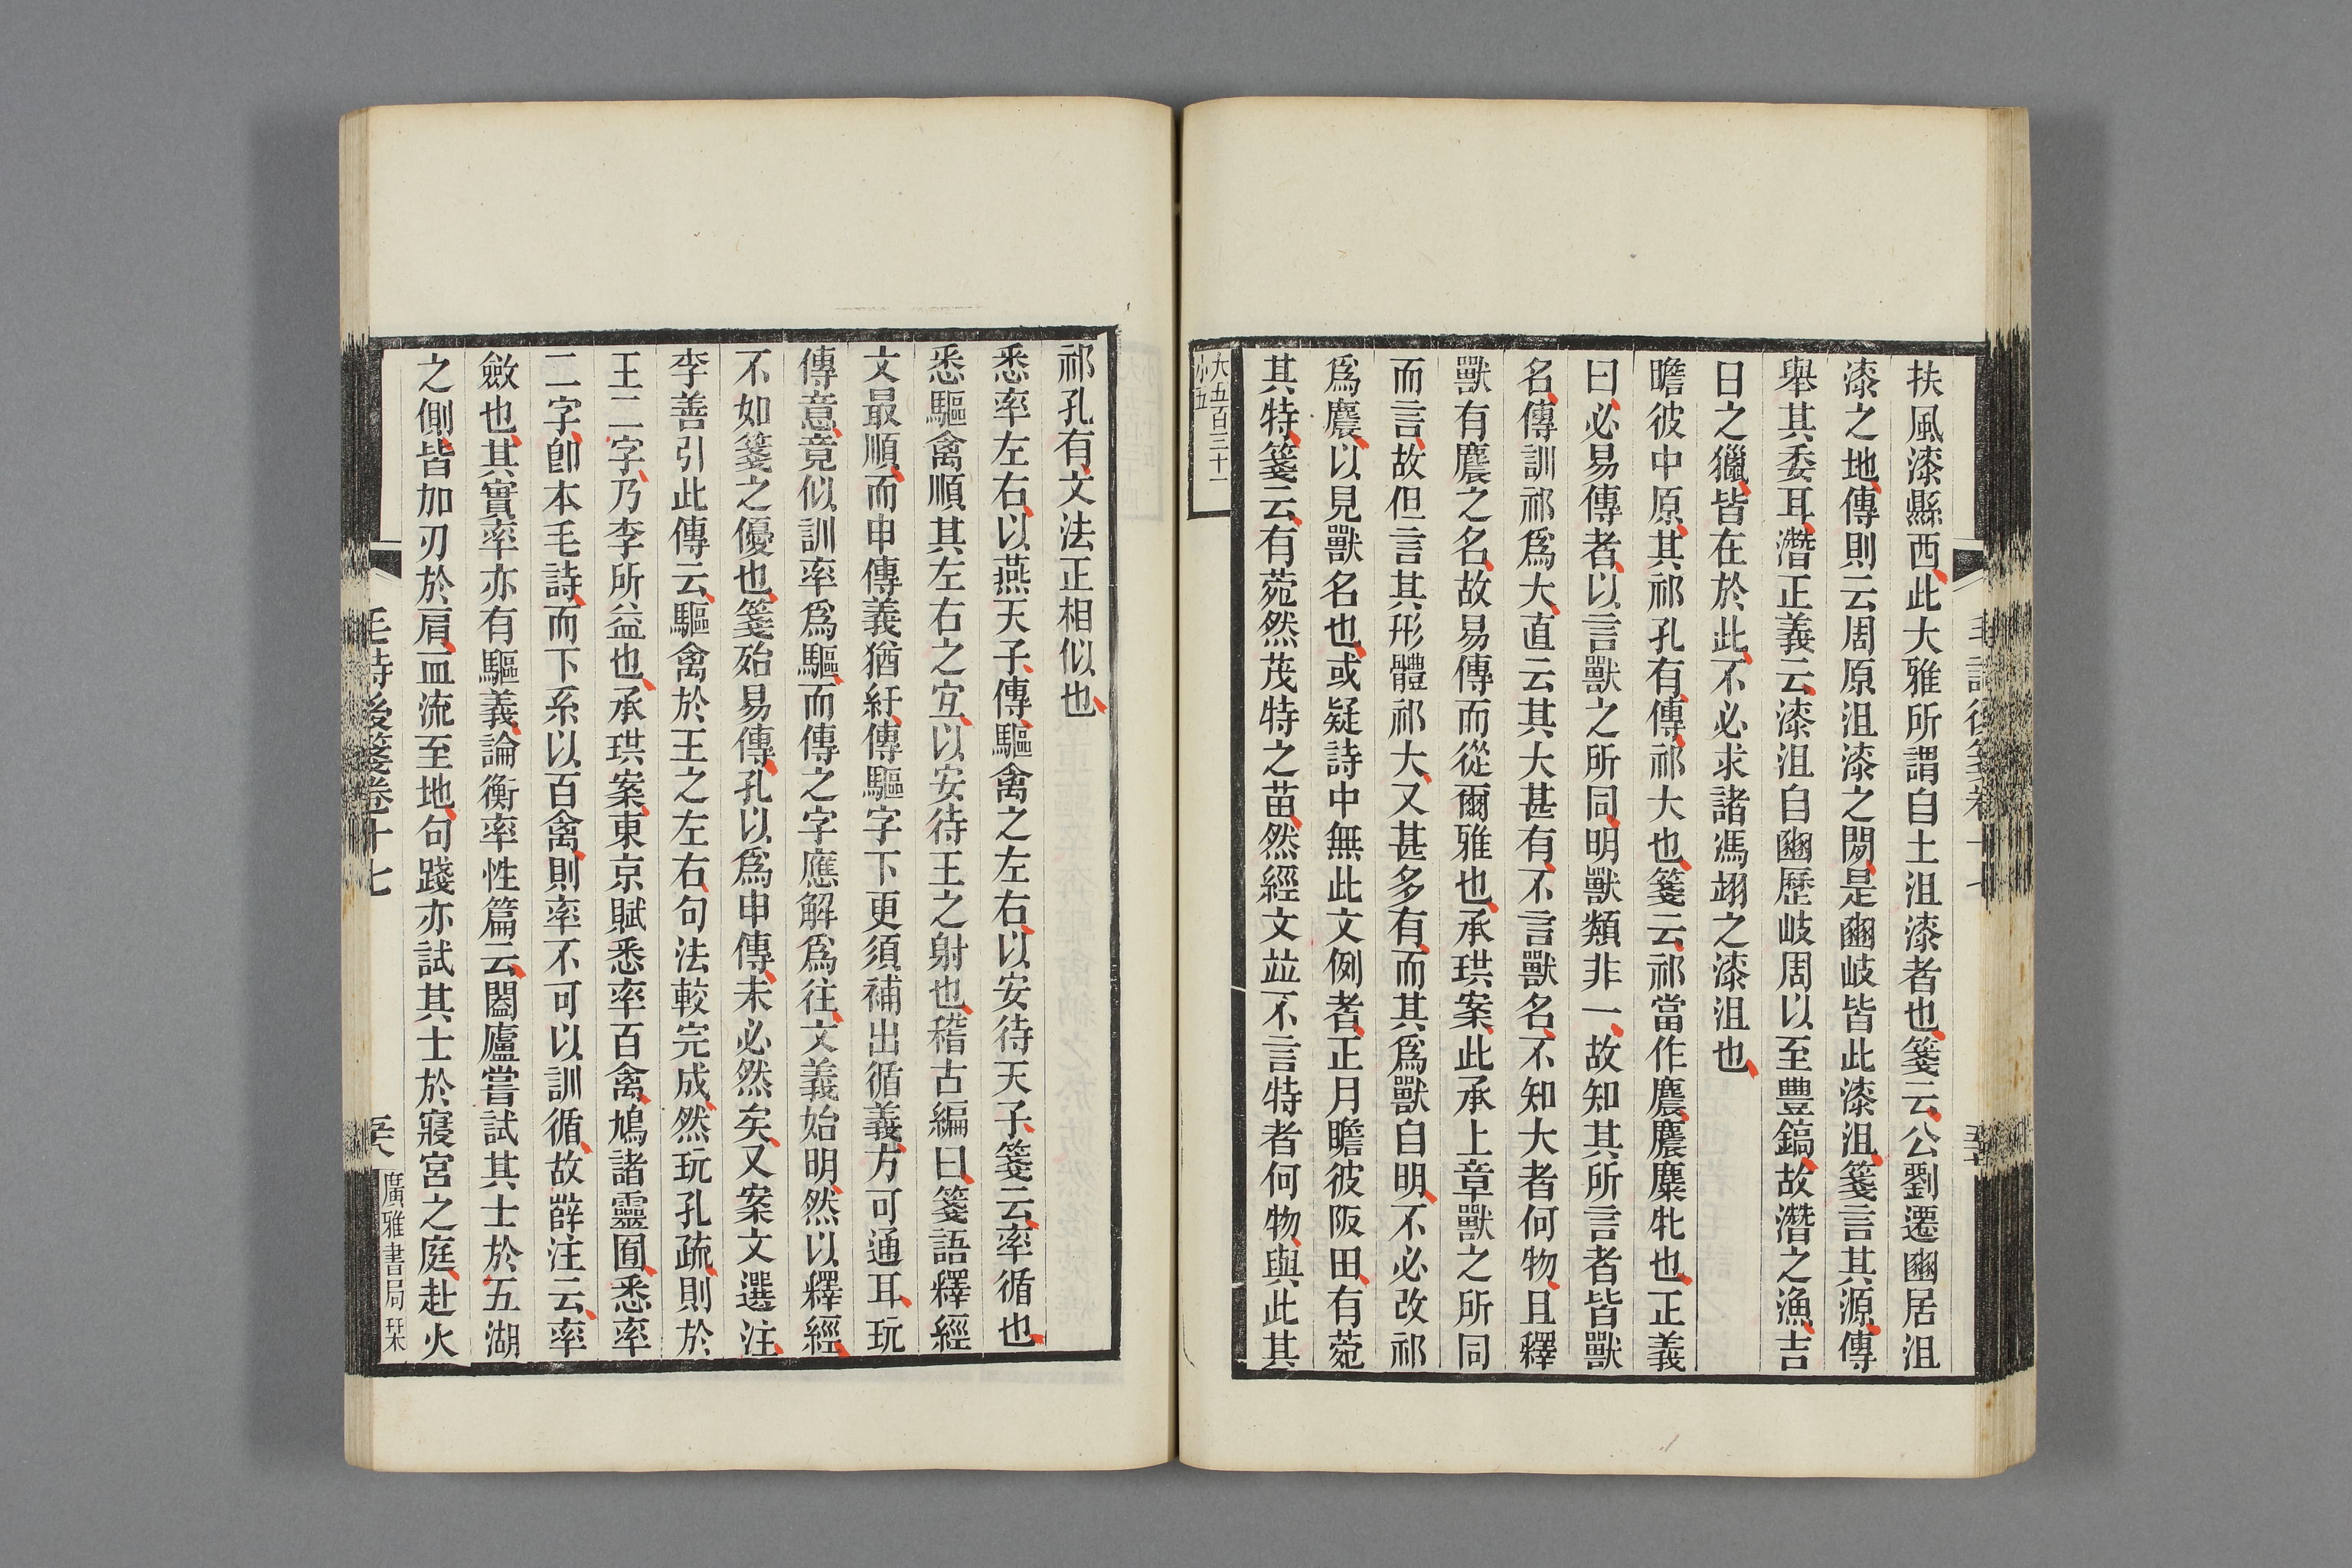 扶風漆縣西此大雅所謂自土沮漆者也箋云公劉遷豳居沮
漆之地傳則云周原沮漆之閒是豳岐皆此漆沮箋言其源傳
舉其委耳潛正義云漆沮自豳歷岐周以至豐鎬故潛之漁吉
日之獵皆在於此不必求諸馮翊之漆沮也
瞻彼中原其祁孔有傳祁大也箋云祁當作麎麎麋牝也正義
曰必易傳者以言獸之所同明獸類非一故知其所言者皆獸
名傳訓祁爲大直云其大甚有不言獸名不知大者何物且釋
獸有麎之名故易傳而從爾雅也承珙案此承上章獸之所同
而言故但言其形體祁大又甚多有而其爲獸自明不必改祁
爲麎以見獸名也或疑詩中無此文例者正月瞻彼阪田有菀
其特箋云有菀然茂特之苗然經文竝不言特者何物與此其
大五百三十一
小五
祁孔有文法正相似也
悉率左右以燕天子傳驅禽之左右以安待天子箋云率循也
悉驅禽順其左右之宜以安待王之射也稽古編曰箋語釋經
文最順而申傳義猶紆傳驅字下更須補出循義方可通耳玩
傳意竟似訓率爲驅而傳之字應解爲往文義始明然以釋經
不如箋之優也箋殆易傳孔以爲申傳未必然矣又案文選注
李善引此傳云驅禽於王之左右句法較完成然玩孔疏則於
王二字乃李所益也承珙案東京賦悉率百禽鳩諸靈囿悉率
二字卽本毛詩而下系以百禽則率不可以訓循故薛注云率
斂也其實率亦有驅義論衡率性篇云闔廬嘗試其士於五湖
之側皆加刃於肩血流至地句踐亦試其士於寢宮之庭赴火
毛詩後箋卷十七
廣雅書局栞